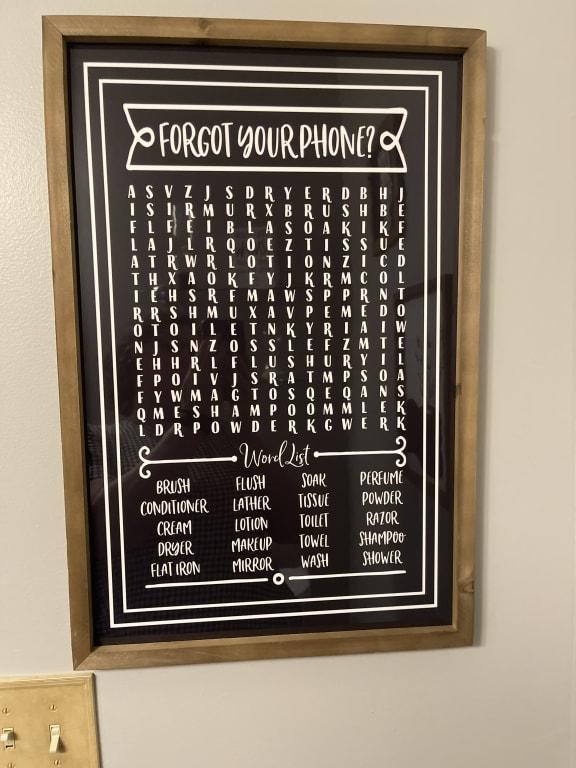 FORGOT YOUR PHONE?
A S V Z J S D R Y E R D B H J
I S I R M U R X B R U S H B E
F L F E I B L A S O A K I K F
L A J L R Q O E Z T I S S U E
A T R W R L O T I O N Z I C D
T H X A O K F Y J K R M C O L
I E H S R F M A W S P P R N T
R R S H M U X A V P E M E D O
O T O I L E T N K Y R I A I W
N J S N Z O S S L E F Z M T E
E H H R L F L U S H U R Y I L
F P O L V J S R A T M P S O A
F Y W M A G T O S Q E Q A N S
Q M E S H A M P O O M M L E K
L D R P O W D E R K G W E R K
Word List
BRUSH FLUSH SOAK PERFUME
CONDITIONER LATHER TISSUE POWDER
CREAM LOTION TOILET RAZOR
DRYER MAKEUP TOWEL SHAMPOO
FLAT IRON MIRROR WASH SHOWER